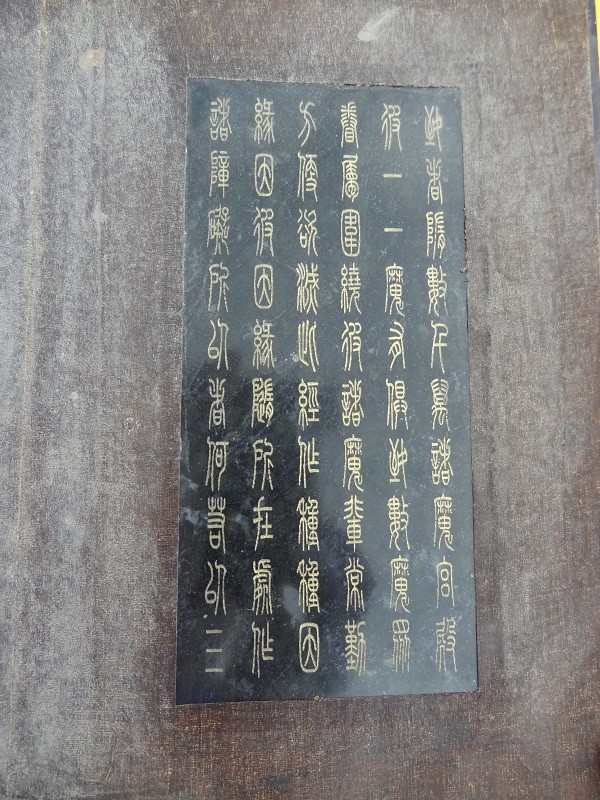 胝者隋數千萬諸魔宮殿
彼一一魔有俱胝數魔眾
眷屬圍繞彼諸魔輩常勤
方便欲滅此經作種種因
緣因彼因緣隨所在處作
諸障礙所以者何若以三